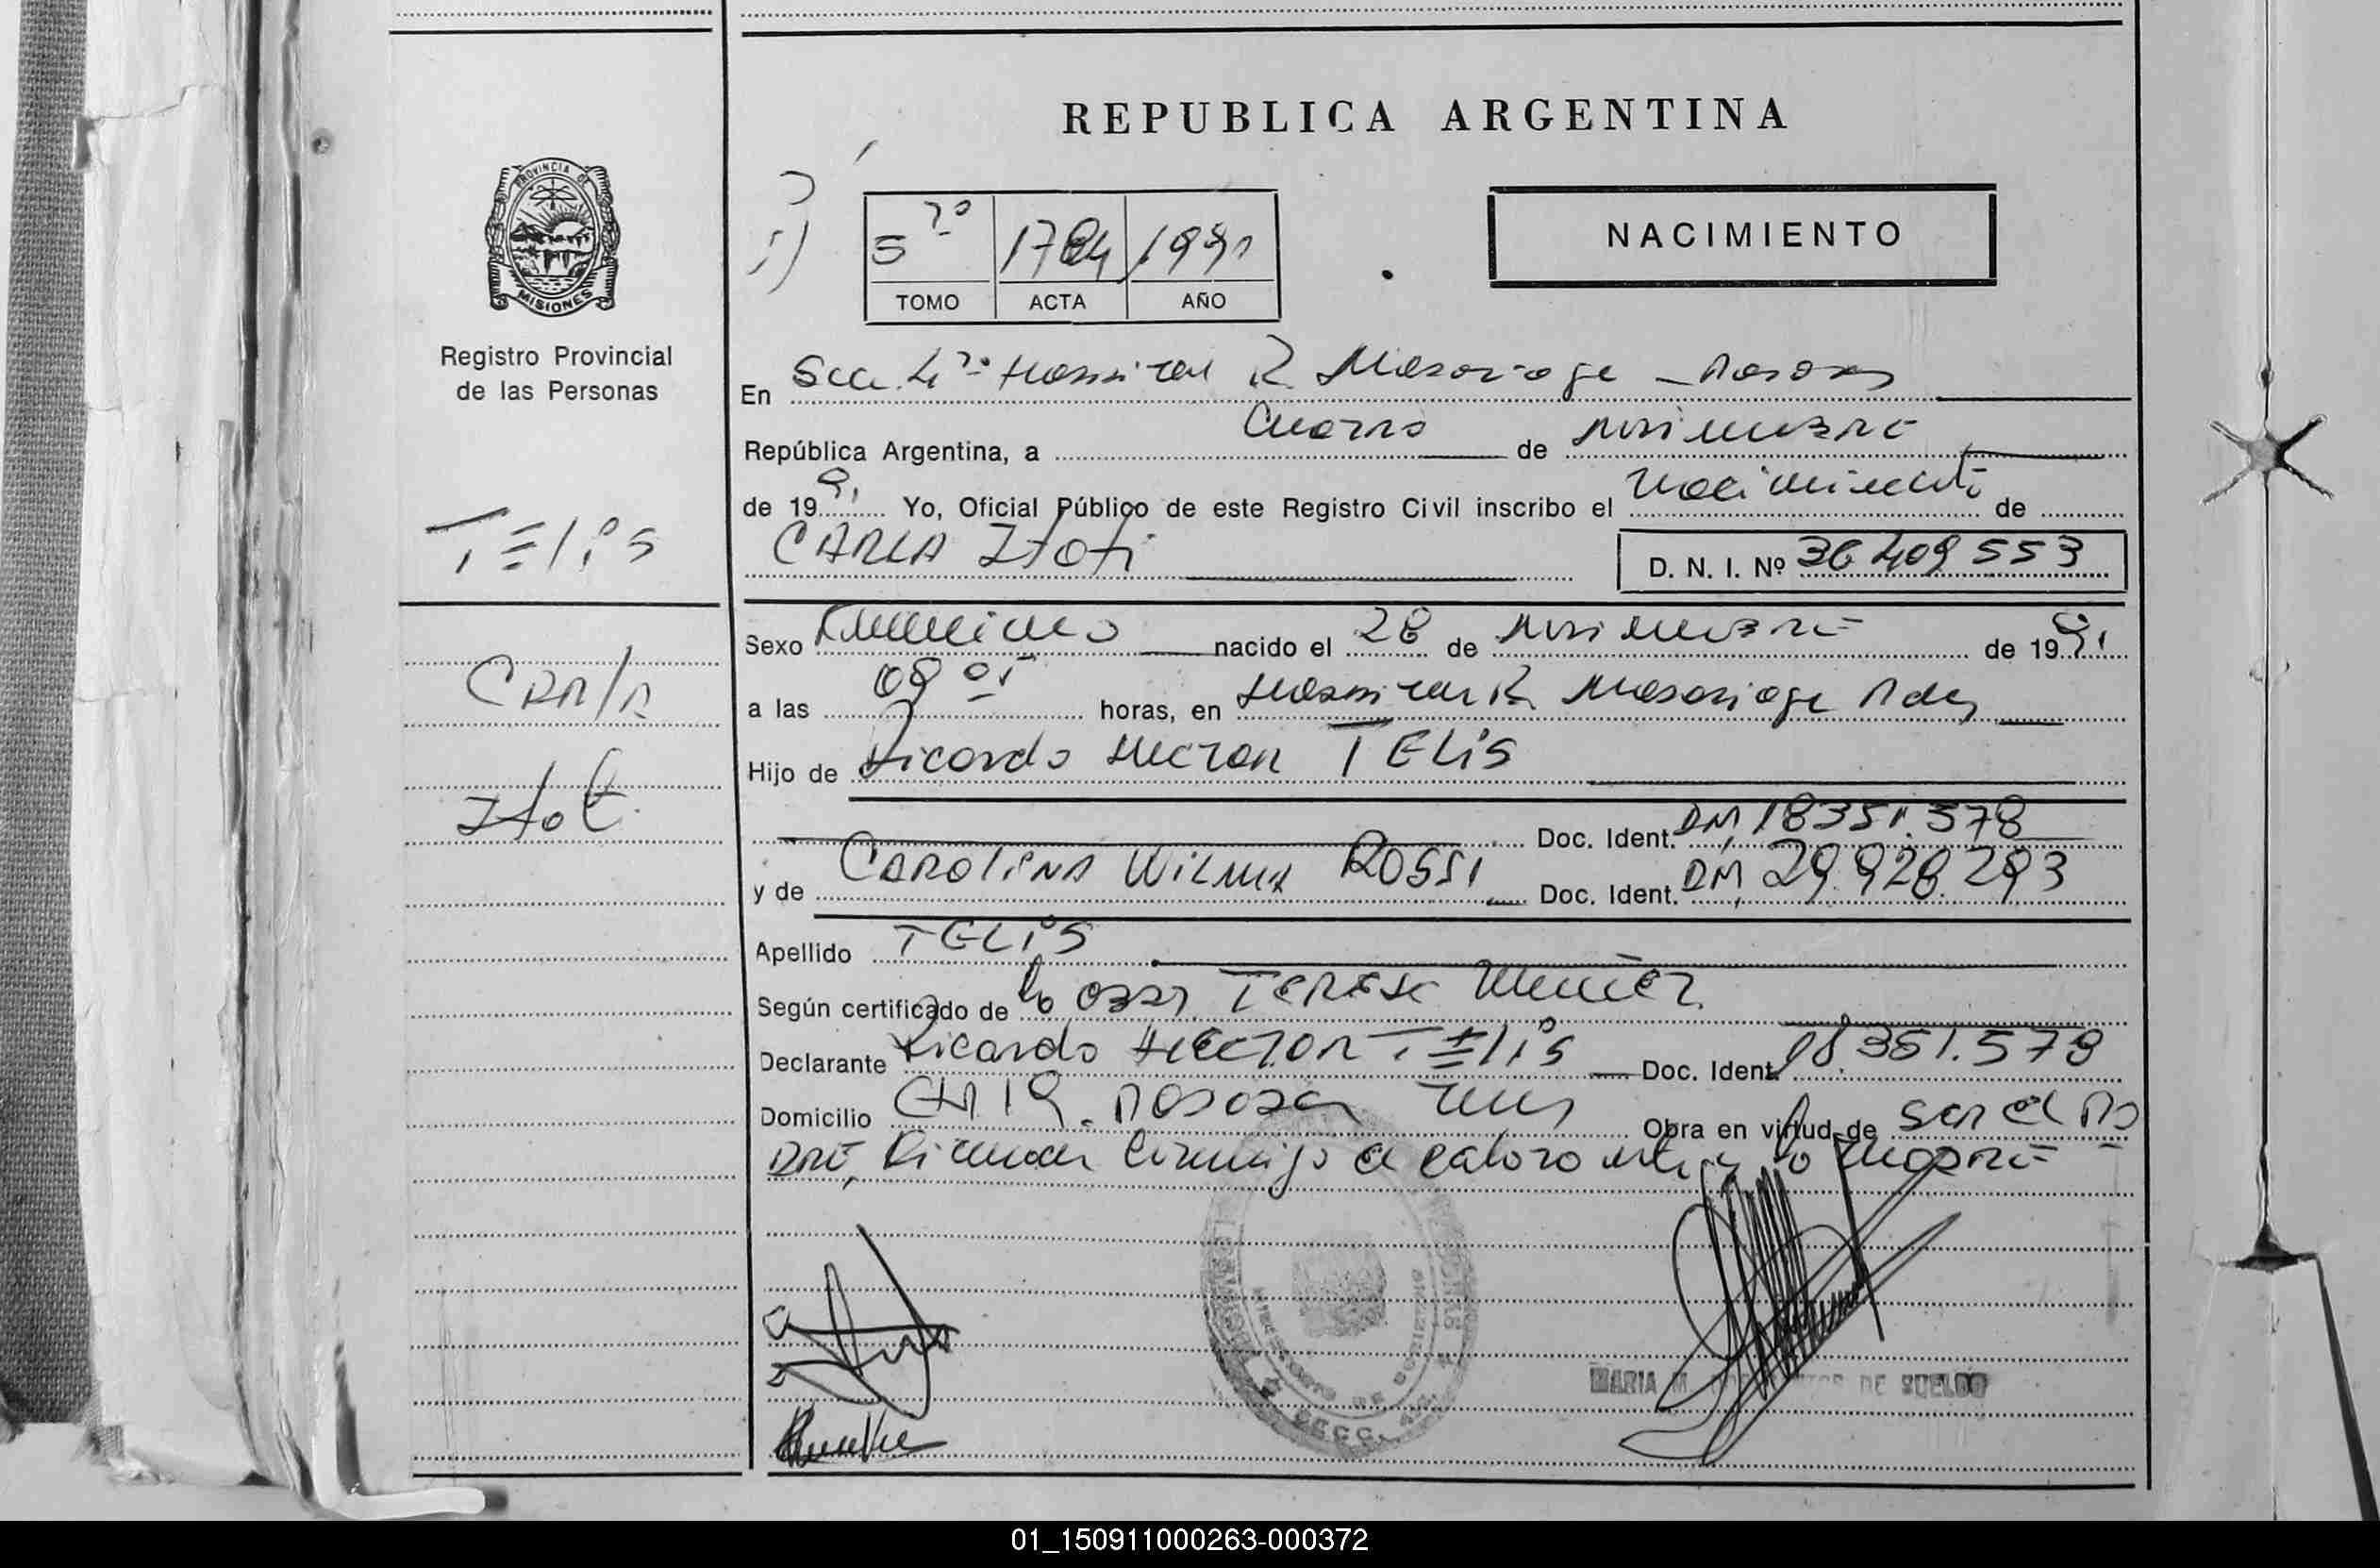 REPUBLICA ARGENTINA
PROVINCIA DE
MISIONES
Registro Provincial
de las Personas
5 1784 1991
TOMO ACTA AÑO
NACIMIENTO
En Secc. 4ta Hospital R. Madariaga - Posadas
República Argentina, a Cuatro de
de 1991 Yo, Oficial Público de este Registro Civil inscribo el nacimiento de
CARLA Itatí
D. N. I. Nº 36 409 553
TELIS
CARLA
Itatí
Sexo Femenino nacido el 28 de de 1991
a las 09 05 horas, en Hospital R. Madariaga Pdas
Hijo de Ricardo Hector TELIS
Doc. Ident. DNI 18351.578
y de CAROLINA WILMA ROSSI Doc. Ident. DNI 29.928.293
Apellido TELIS
Según certificado de la TERESA
Declarante Ricardo Hector TELIS Doc. Ident. 18351.578
Domicilio CH. 19. Posadas Obra en virtud de ser el PA
DRE,
MARIA M. DE SUELDO
01_150911000263-000372